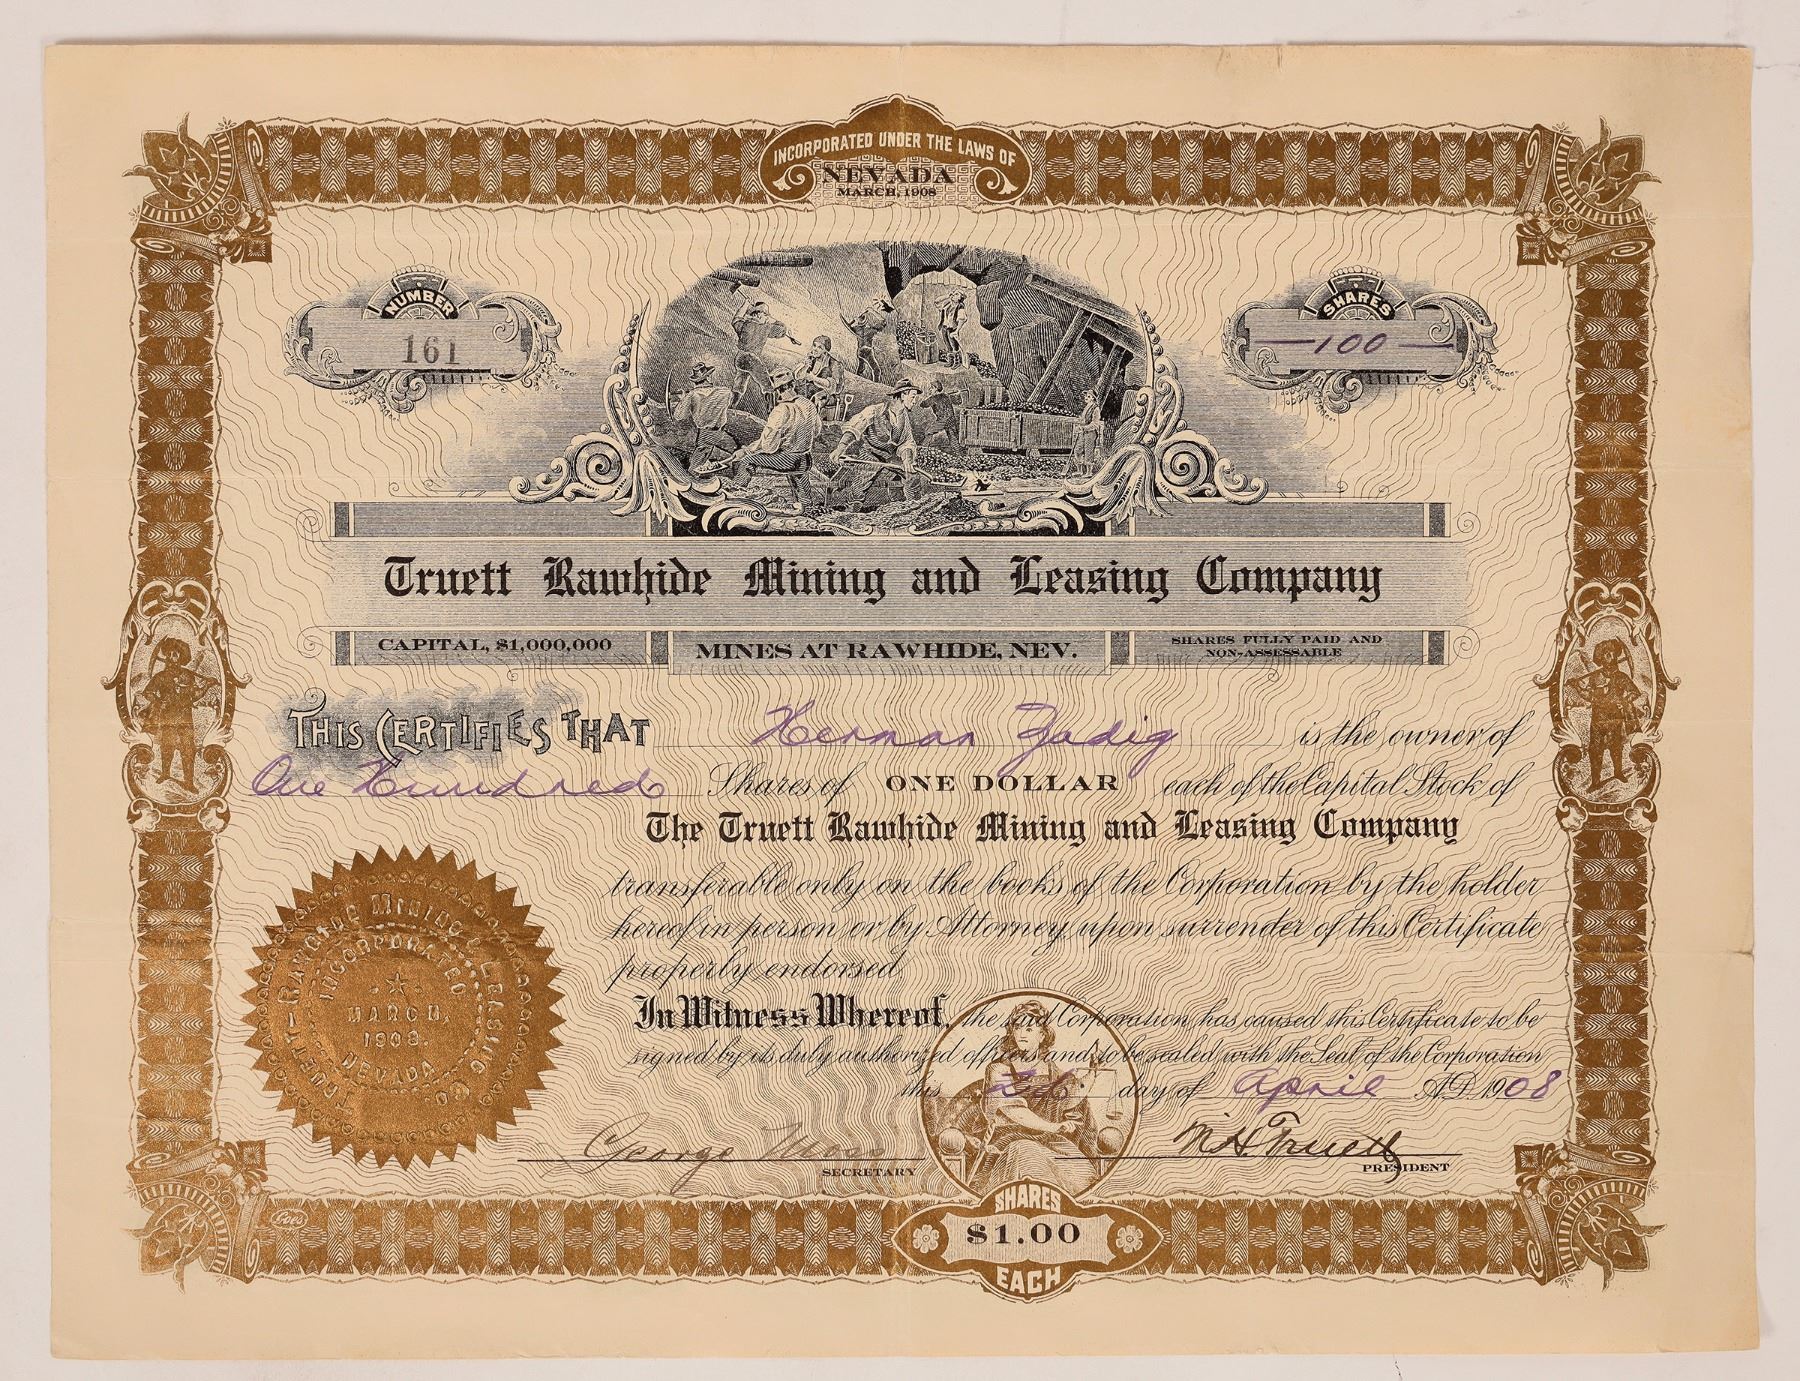 INCORPORATED UNDER THE LAWS OF
NEVADA
MARCH, 1908
NUMBER
161
SHARES
100
Truett Rawhide Mining and Leasing Company
CAPITAL, $1,000,000
MINES AT RAWHIDE, NEV.
SHARES FULLY PAID AND
NON-ASSESSABLE
THIS CERTIFIES THAT Herman Zadig is the owner of
One Hundred Shares of ONE DOLLAR each of the Capital Stock of
The Truett Rawhide Mining and Leasing Company
transferable only on the books of the Corporation by the holder
hereof in person or by Attorney upon surrender of this Certificate
properly endorsed
In Witness Whereof, the said Corporation has caused this Certificate to be
signed by its duly authorized officers and to be sealed with the Seal of the Corporation
this day of April A.D. 1908
TRUETT-RAWHIDE MINING & LEASING CO.
INCORPORATED
MARCH,
1908.
NEVADA
George
SECRETARY
M H Truett
PRESIDENT
Goes
SHARES
$1.00
EACH